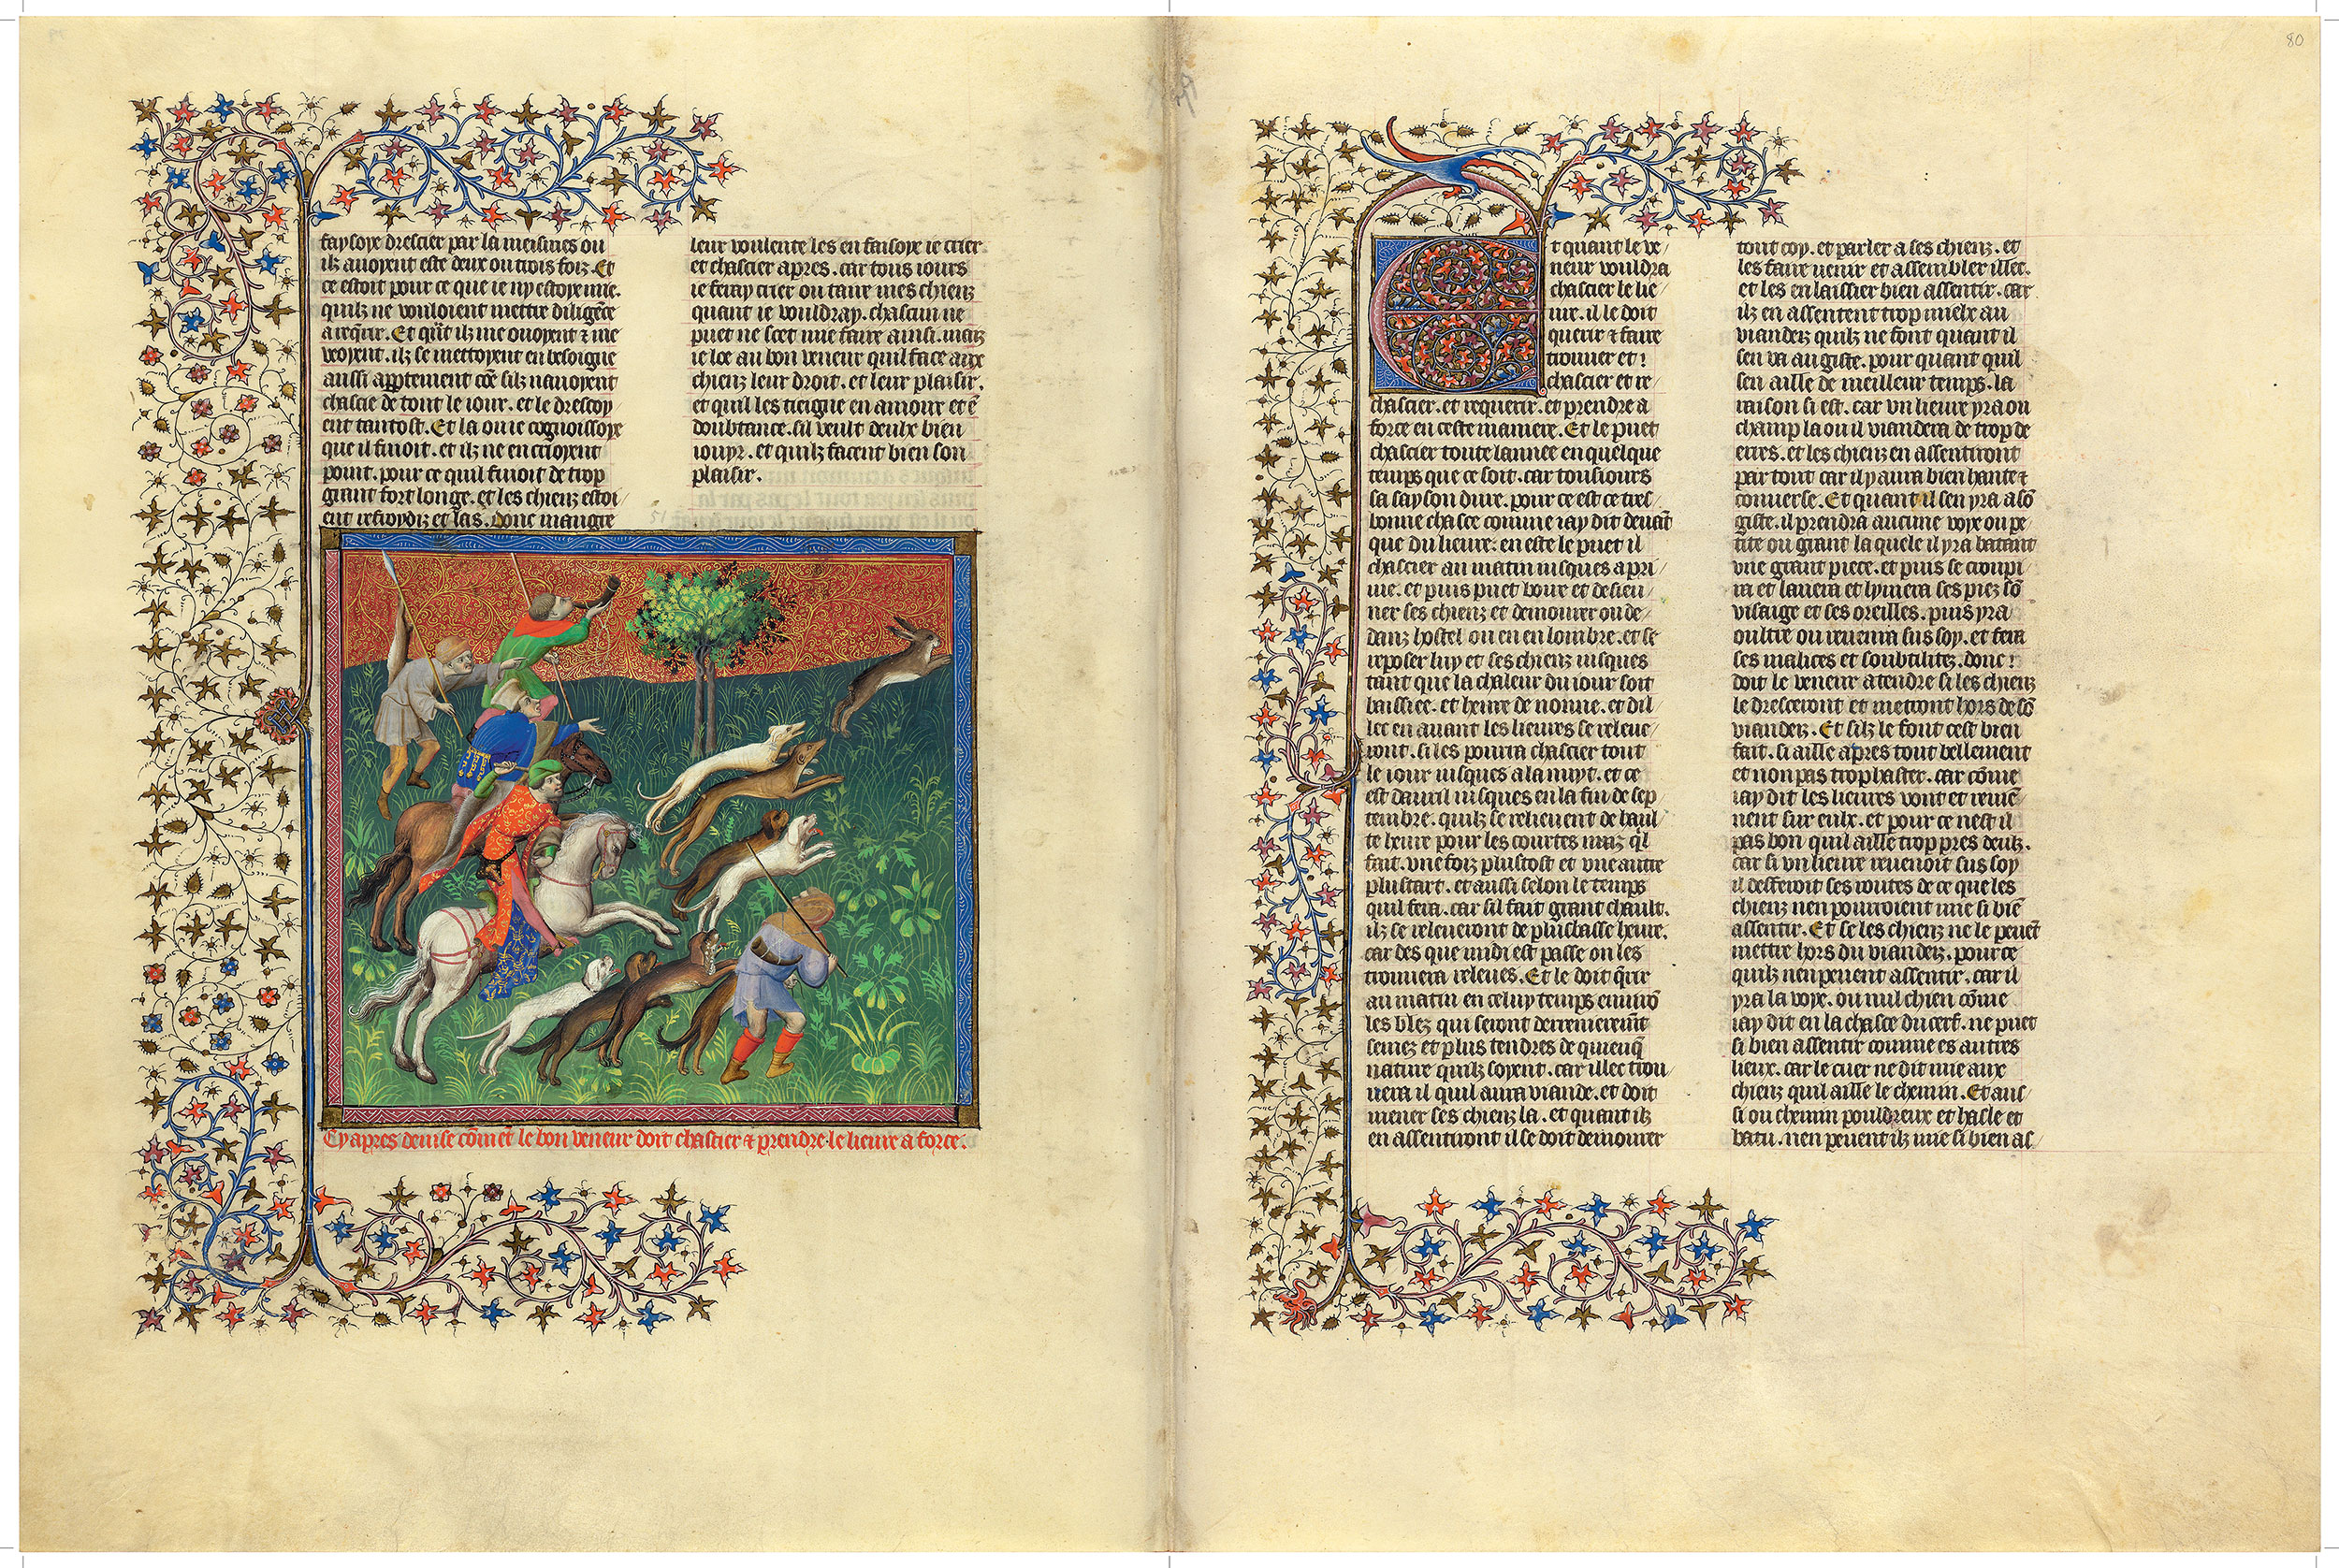 faysoye drescier par la meismes ou
ilz auoyent este deux ou trois foiz. Et
ce estoit pour ce que ie ny estoye mie.
quilz ne vouloient mettre diligēce
a reqrir. Et qūt ilz me ouoyent ⁊ me
veoyent. ilz se mettoyent en besoigne
aussi apptement cōe silz nauoyent
chascie de tout le iour. et le drescoy
ent tantost. Et la ou ie cognoissoye
que il fuioit. et ilz ne en crioyent
point. pour ce quil fuioit de trop
grant fort longe. et les chienz estoi
ent refroydiz et las. Donc maugre
leur voulente les en faisoye ie crier
et chascier apres. car tous iours
ie feray crier ou taire mes chienz
quant ie vouldray. chascun ne
puet ne scet mie faire ainsi. maiz
ie loe au bon veneur quil face aux
chienz leur droit. et leur plaisir.
et quil les tieigne en amour et ē
doubtance. sil veult deulx bien
iouyr. et quilz facent bien son
plaisir.
Cy apres deuise cōment le bon veneur doit chascier ⁊ prendre le lieure a force.
80
Et quant le ve/
neur vouldra
chascier le lie/
ure. il le doit
querir ⁊ faire
trouuer et
chascier et re/
chascier. et requerir. et prendre a
force en ceste maniere. Et le puet
chascier toute lannee en quelque
temps que ce soit. car tousiours
sa sayson dure. pour ce est ce tres/
bonne chasce comme iay dit deuāt
que du lieure. en este le puet il
chascier au matin iusques a pri/
me. et puis puet boire et desieu/
ner ses chienz et demourer ou de/
danz hostel ou en en lombre. et se
reposer luy et ses chienz iusques
tant que la chaleur du iour soit
baissiee. et heure de nonne. et dil/
lec en auant les lieures se releue/
ront. si les pourra chascier tout
le iour iusques a la nuyt. et ce
est dauril iusques en la fin de sep/
tembre. quilz se relieuent de haul/
te heure pour les courtes nuiz ql
fait. vne foiz plustost et vne autre
plustart. et aussi selon le temps
quil fera. car sil fait grant chault.
ilz se releueront de plusbasse heure.
car des que midi est passe on les
trouuera releues. Et le doit q̄rir
au matin en celuy temps enuirō
les blez qui seront derrenieremēt
semez et plus tendres de quieuq̄
nature quilz soyent. car illec trou/
uera il quil aura viande. et doit
mener ses chienz la. et quant ilz
en assentiront il se doit demourer
tout coy. et parler a ses chienz. et
les faire uenir et assembler illec.
et les en laissier bien assentir. car
ilz en assentent trop mielx au
viandeiz quilz ne font quant il
sen va au giste. pour quant quil
sen aille de meilleur temps. la
raison si est. car vn lieure yra ou
champ la ou il viandera de trop de
erres. et les chienz en assentiront
par tout car il y aura bien hante ⁊
conuerse. Et quant il sen yra a sō
giste. il prendra aucune voye ou pe/
tite ou grant la quele il yra batant
vne grant piece. et puis se croupi/
ra et lauera et lymera ses piez sō
visaige et ses oreilles. puis yra
oultre ou reuenra sus soy. et fera
ses malices et soubtilitez. donc
doit le veneur atendre si les chienz
le dresceront et mettront hors de sō
viandeiz. Et silz le font cest bien
fait. si aille apres tout bellement
et non pas trop haster. car cōme
iay dit les lieures vont et reuiē/
nent sur eulx. et pour ce nest il
pas bon quil aille trop pres deulz.
car si vn lieure reuenoit sus soy
il desferoit ses routes de ce que les
chienz nen pourroient mie si biē
assentir. Et se les chienz ne le peuēt
mettre hors du viandeiz. pour ce
quilz nen peuent assentir. car il
yra la voye. ou nul chien cōme
iay dit en la chasce du cerf. ne puet
si bien assentir comme es autres
lieux. car le cuer ne dit mie aux
chienz quil aille le chemin. Et aus/
si ou chemin pouldreux et hasle et
batu. nen peuent ilz mie si bien as/